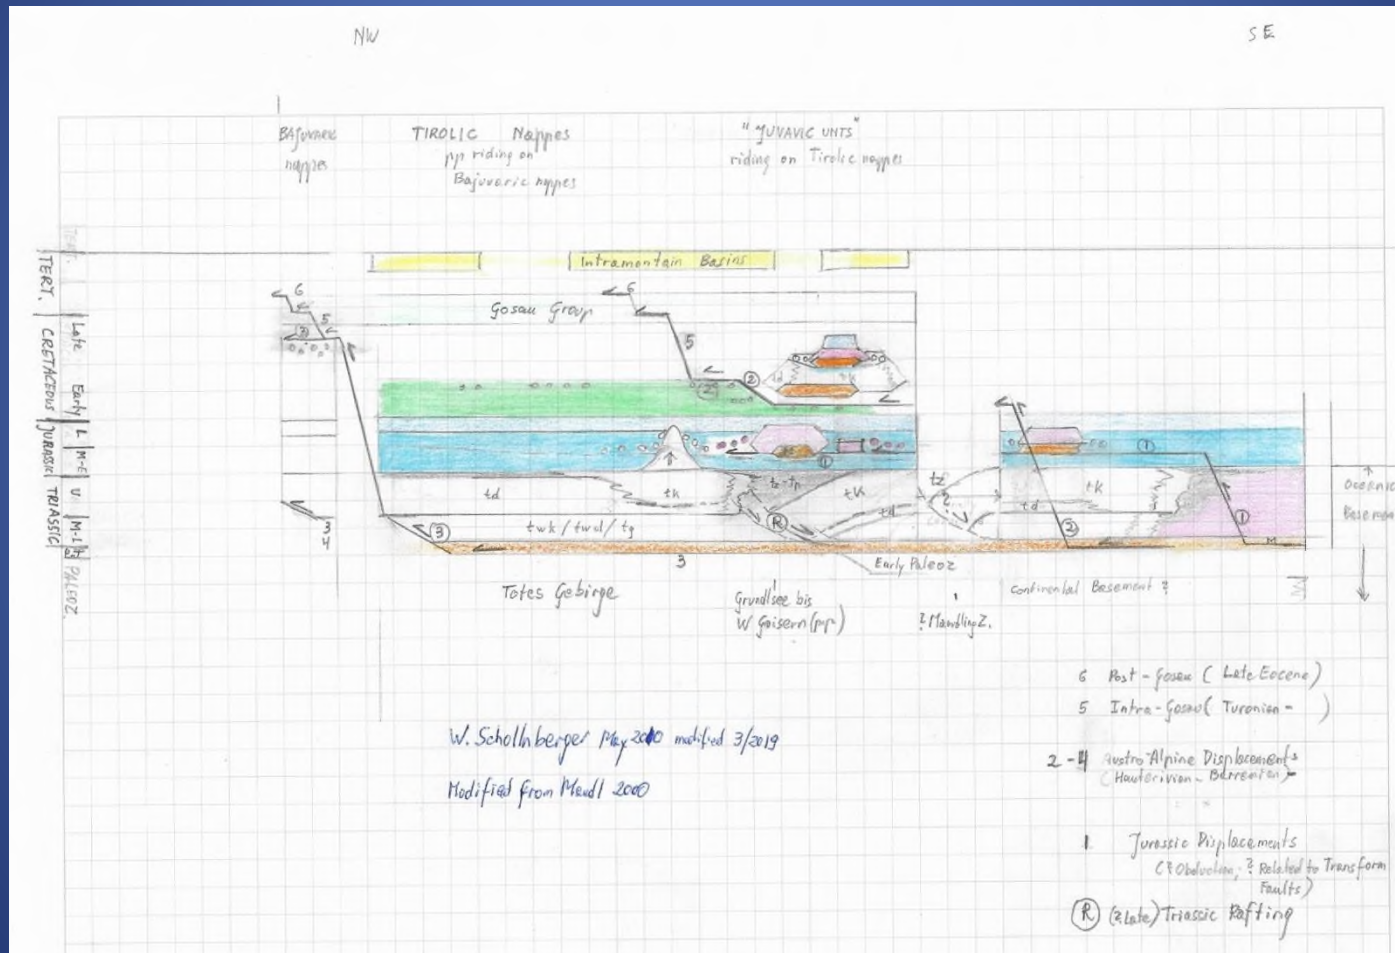 NW
SE
BAJUVARIC
nappes
TIROLIC Nappes
pp riding on
Bajuvaric nappes
"JUVAVIC UNITS"
riding on Tirolic nappes
TERT.
TERT.
CRETACEOUS
JURASSIC
TRIASSIC
PALEOZ.
Late
Early
L
M-E
U
M-L
Intramontain Basins
6
6
5
5
Gosau Group
3
2
2
td
tk
1
1
td
tk
tz-tp
tk
td
tz
?
td
tk
R
3
twk / twd / tg
3
4
3
2
1
M
Oceanic
Basement
Early Paleoz
Totes Gebirge
Grundlsee bis
W Goisern (pp)
? Mandling Z.
Continental Basement ?
6 Post-Gosau (Late Eocene)
5 Intra-Gosau (Turonian - )
2-4 Austro Alpine Displacements
(Hauterivian - Barremian)
1 Jurassic Displacements
(? Obduction, ? Related to Transform
Faults)
R (? Late) Triassic Rafting
W. Schollnberger May 2010 modified 3/2019
Modified from Mandl 2000